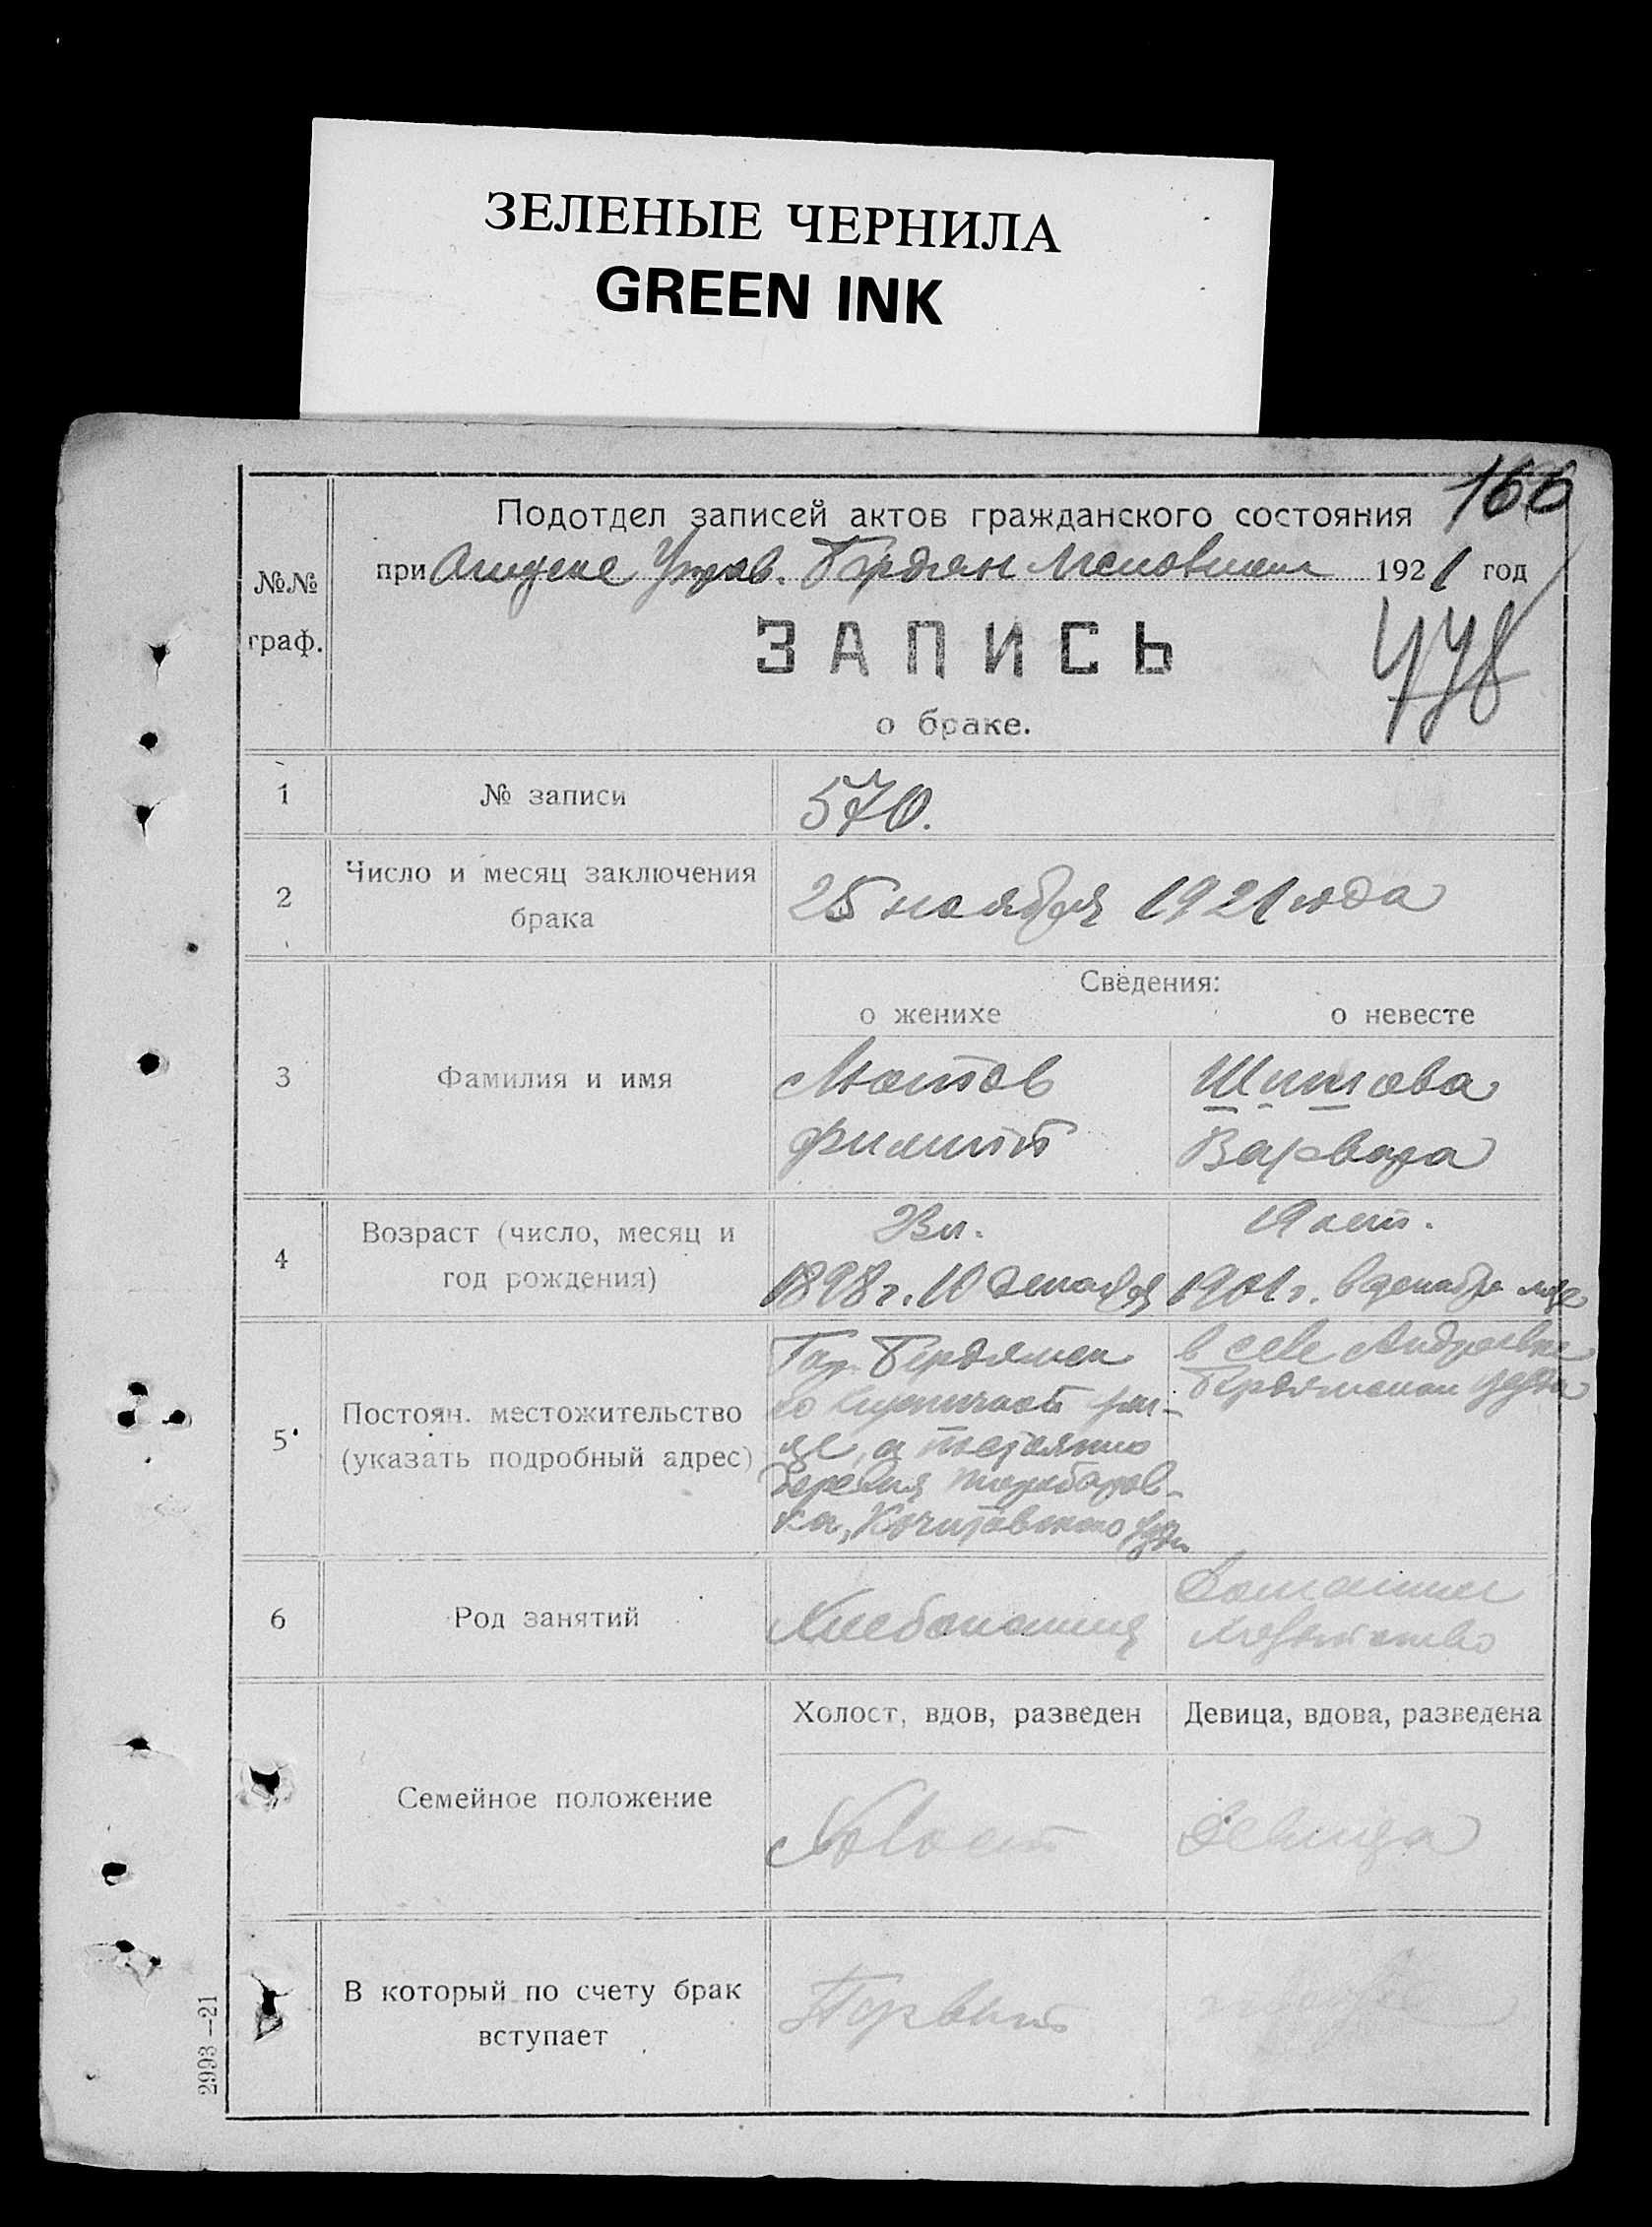 ЗЕЛЕНЫЕ ЧЕРНИЛА
GREEN INK
166
Подотдел записей актов гражданского состояния
№№ граф.
при Отделе Управ. Бердян 1921 год
ЗАПИСЬ
о браке.
1 № записи 570.
2 Число и месяц заключения брака 25 ноября 1921 года
Сведения:
о женихе о невесте
3 Фамилия и имя
Лютов Шитова
Филипп Варвара
4 Возраст (число, месяц и год рождения)
19 лет.
1898 г. 10 декабря 1901 г. в декабре м-це
5 Постоян. местожительство (указать подробный адрес)
Гор. Бердянск в селе Андреевке
Бердянском уезде
а постоянно
деревня
6 Род занятий
Хлебопашец Домашнее
хозяйство
Холост, вдов, разведен Девица, вдова, разведена
Семейное положение
Холост девица
В который по счету брак вступает
Первый
2993—21